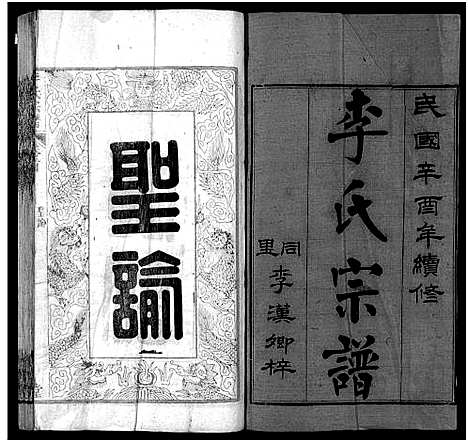 民國辛酉年續修
李氏宗譜
同里李漢卿梓
聖諭